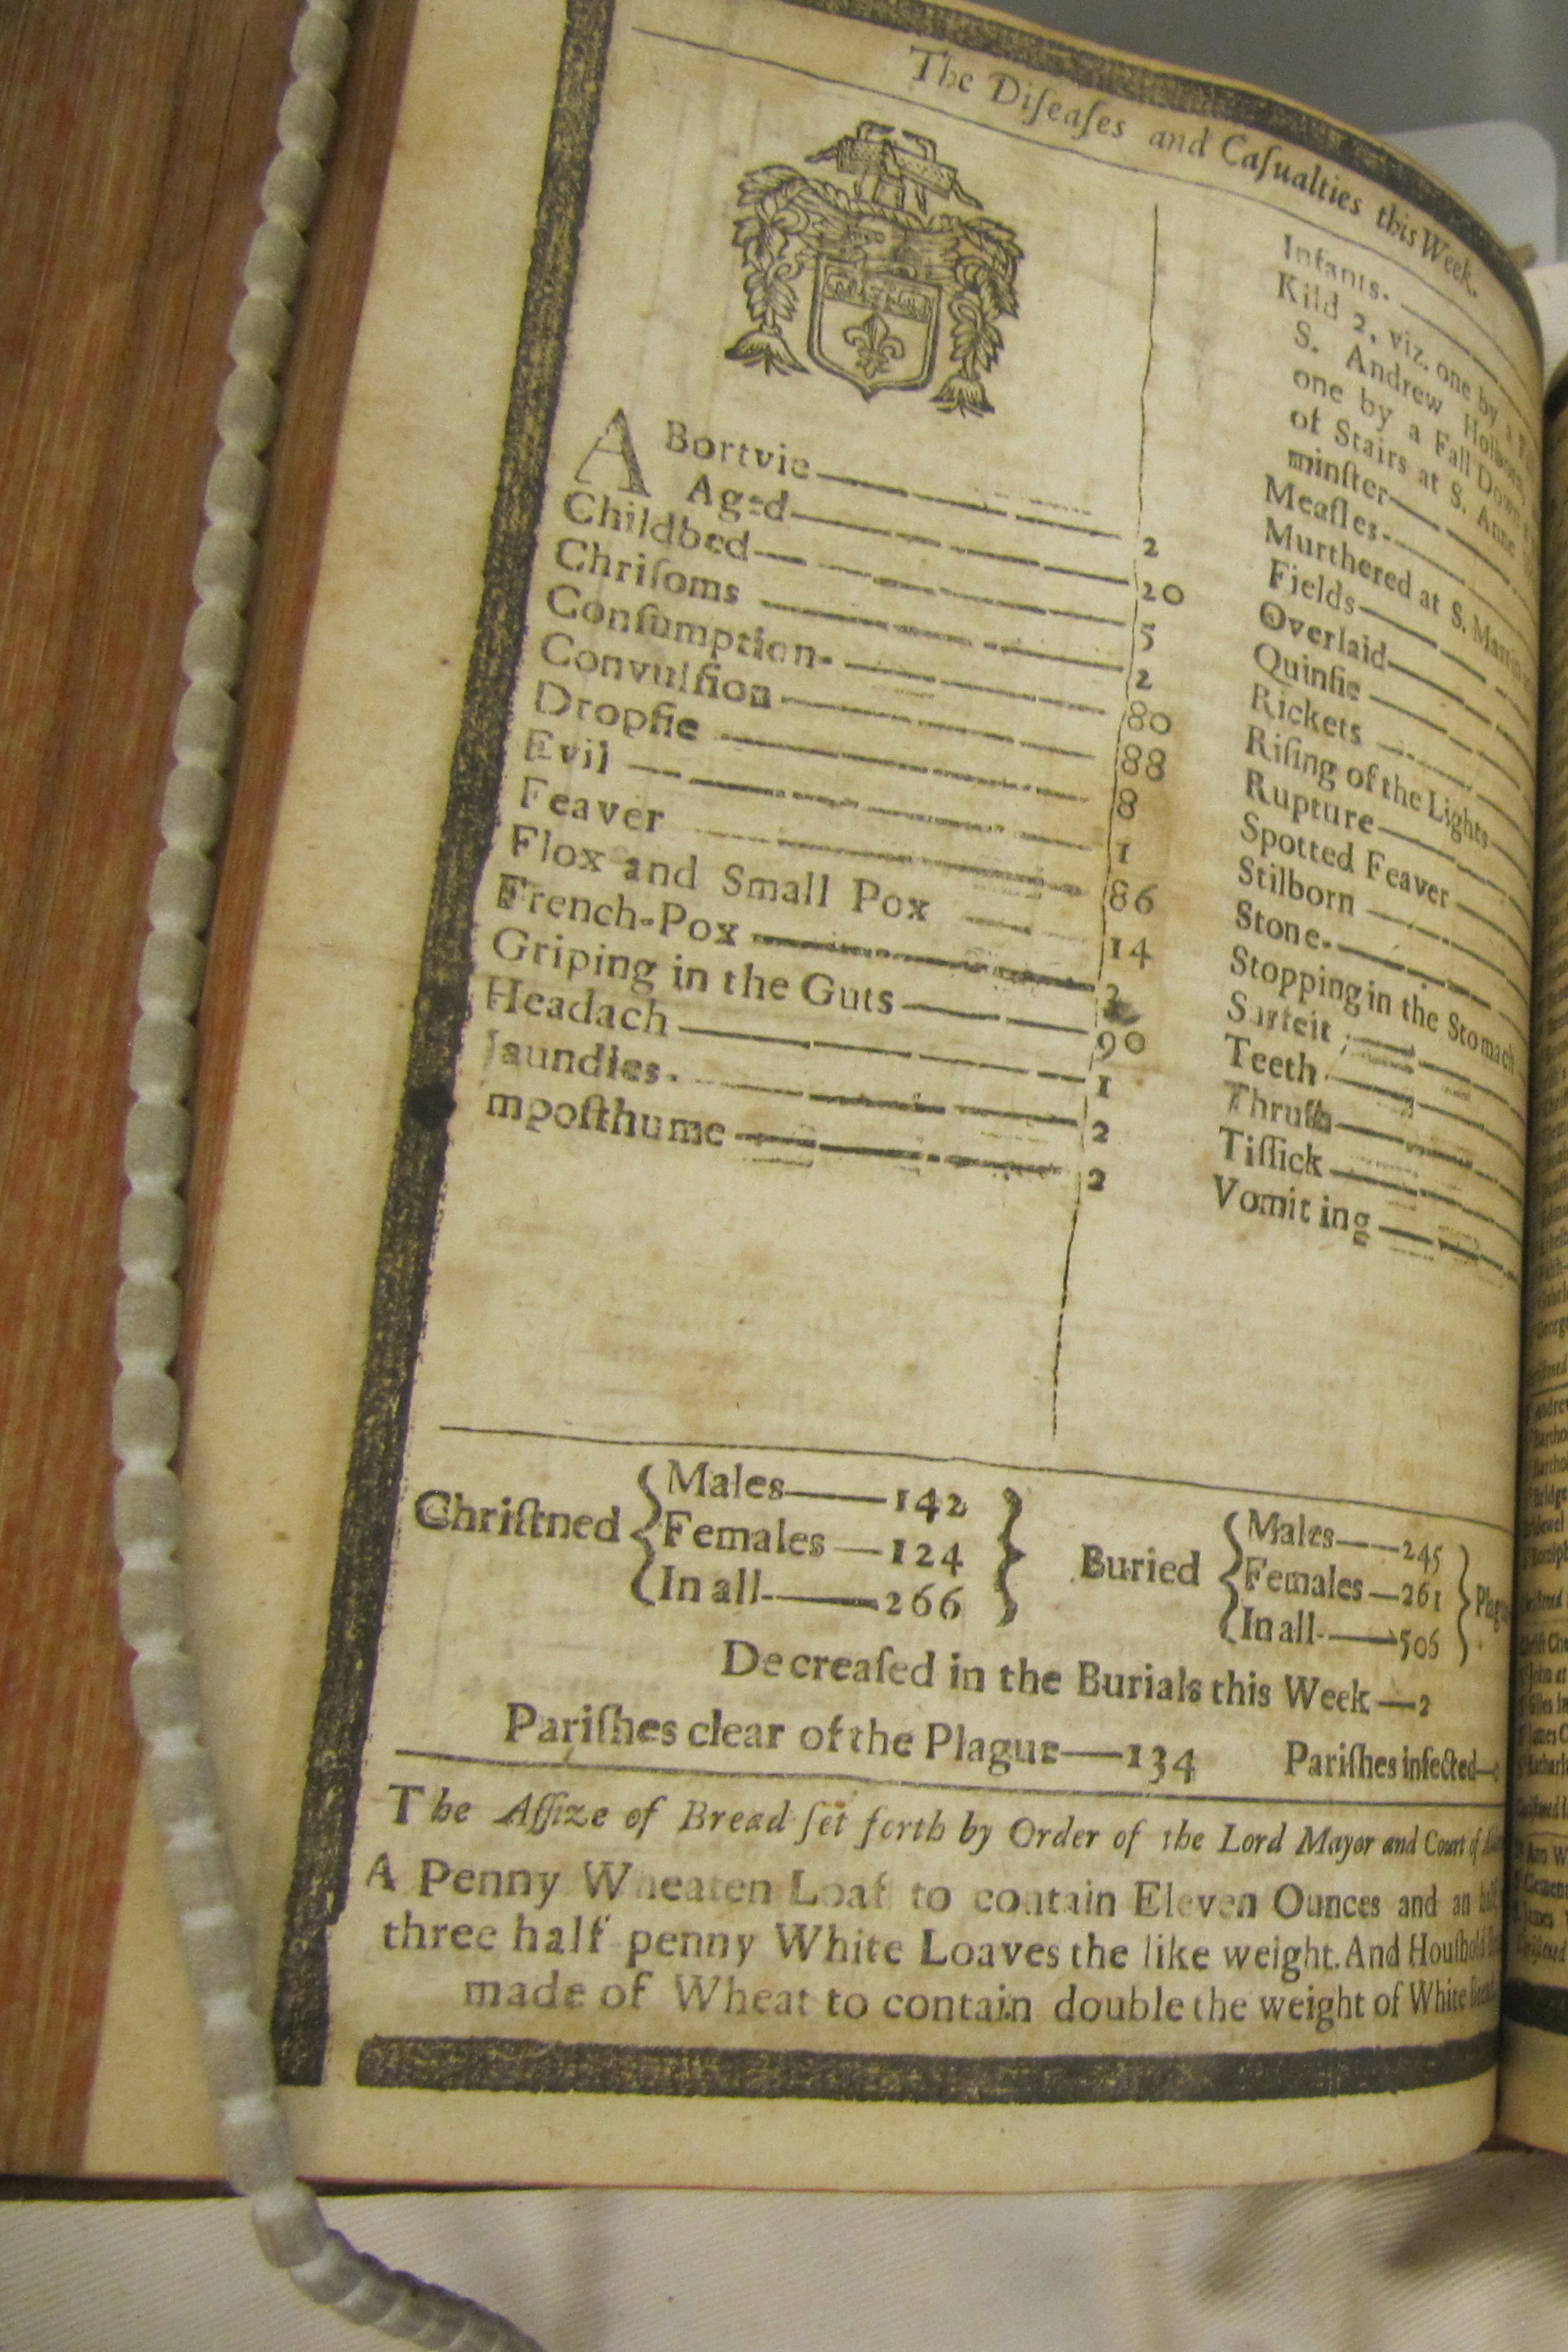 The Diſeaſes and Caſualties this Week.
ABortvie 2
Aged 20
Childbed 5
Chriſoms 2
Conſumption 80
Convulſion 88
Dropſie 8
Evil 1
Feaver 86
Flox and Small Pox 14
French-Pox
Griping in the Guts 90
Headach 1
Jaundies 2
mpoſthume 2
Infants
Kild 2, viz. one by a
S. Andrew Holborn,
one by a Fall Down
of Stairs at S. Anne
minſter
Meaſles
Murthered at S. Martin
Fields
Overlaid
Quinſie
Rickets
Riſing of the Lights
Rupture
Spotted Feaver
Stilborn
Stone
Stopping in the Stomach
Surfeit
Teeth
Thruſh
Tiſſick
Vomiting
Chriſtned { Males 142
Females 124
In all 266 }
Buried { Males 245
Females 261
In all 506 } Plag
Decreaſed in the Burials this Week—2
Pariſhes clear of the Plague—134 Pariſhes infected—
The Aſſize of Bread ſet forth by Order of the Lord Mayor and Court of
A Penny Wheaten Loaf to contain Eleven Ounces and an
three half-penny White Loaves the like weight. And Houſhold
made of Wheat to contain double the weight of White